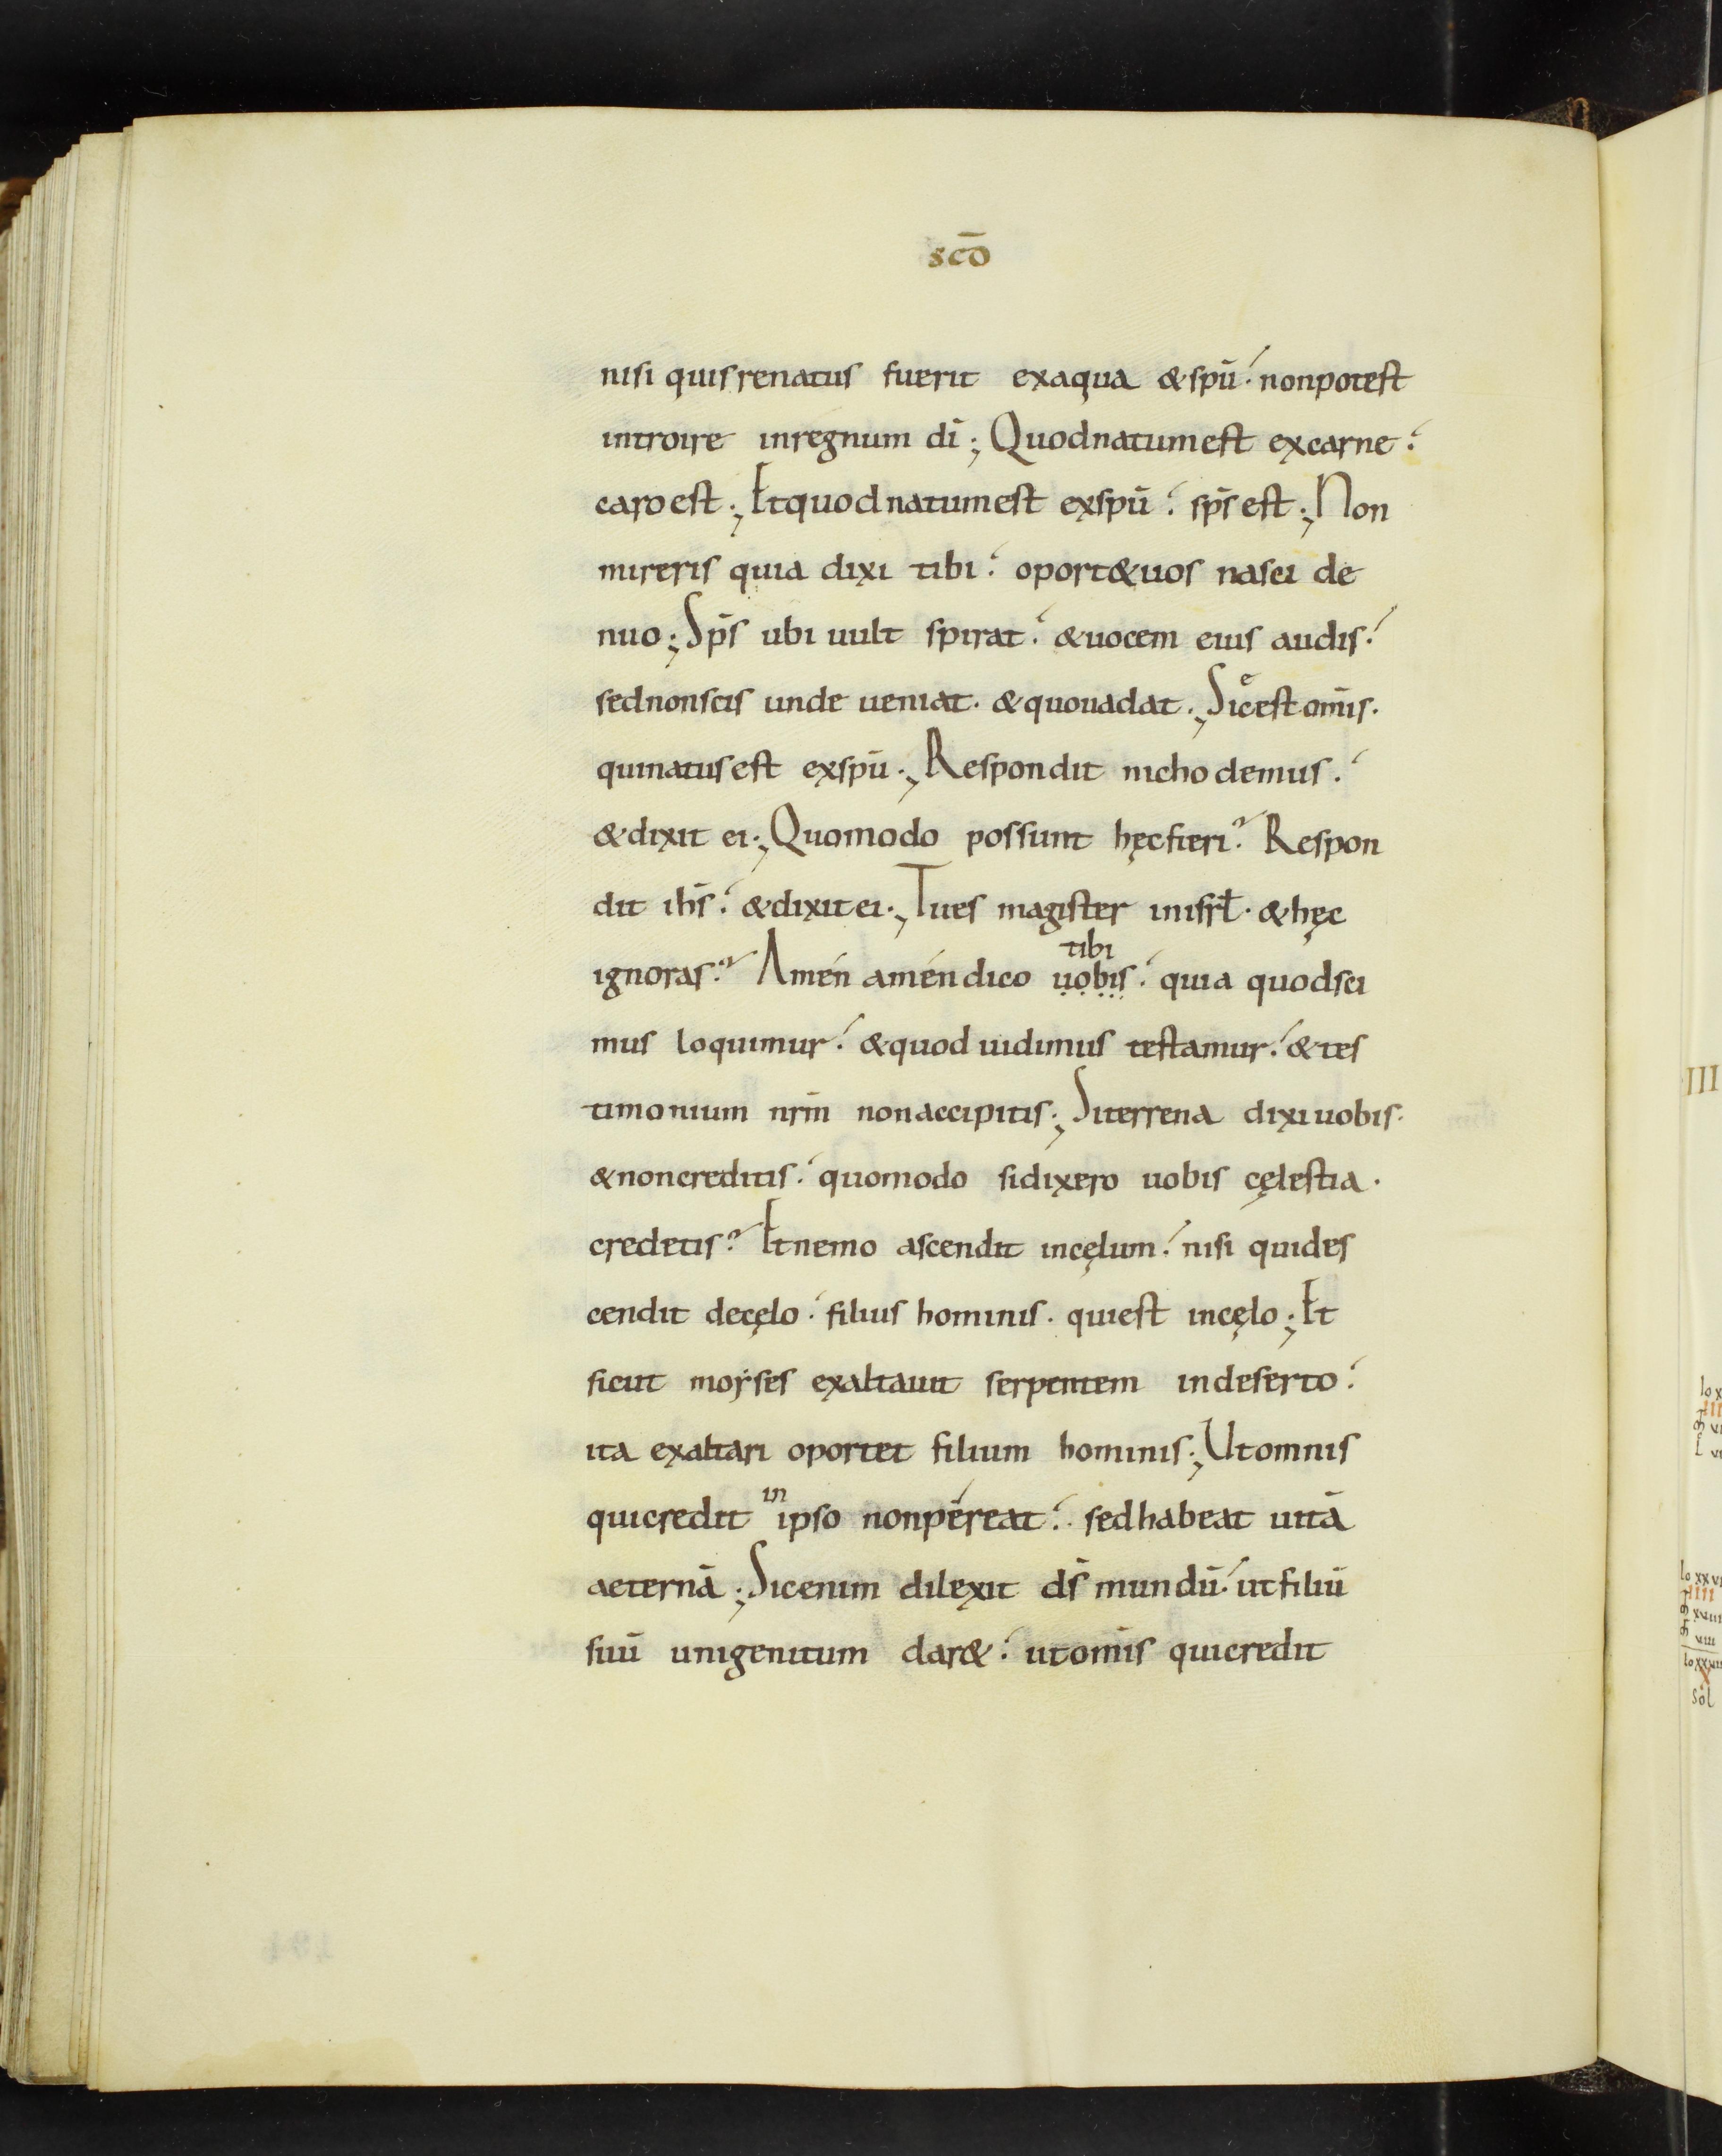 scō
nisi quis renatus fuerit ex aqua & spū. non potest
introire in regnum dī; Quod natum est ex carne.
caro est; Et quod natum est ex spū. sps̄ est; Non
mireris quia dixi tibi. oport& uos nasci de
nuo; Sps̄ ubi uult spirat. & uocem eius audis.
sed non scis unde ueniat. & quo uadat; Sic est om̄is.
qui natus est ex spū; Respondit nichodemus.
& dixit ei; Quomodo possunt hęc fieri? Respon
dit ih̄s. & dixit ei; Tu es magister in isrł. & hęc
ignoras? Amén amén dico uobis tibi. quia quod sci
mus loquimur. & quod uidimus testamur. & tes
timonium nrm̄ non accipitis; Si terrena dixi uobis.
& non creditis. quomodo si dixero uobis cęlestia.
credetis? Et nemo ascendit in cęlum. nisi qui des
cendit de cęlo. filius hominis. qui est in cęlo; Et
sicut moẏses exaltauit serpentem in deserto.
ita exaltari oportet filium hominis; Ut omnis
qui credit in ipso non péreat. sed habeat uitā
aeternā; Sic enim dilexit ds̄ mundū. ut filiū
suū unigenitum dar&. ut om̄is qui credit
III